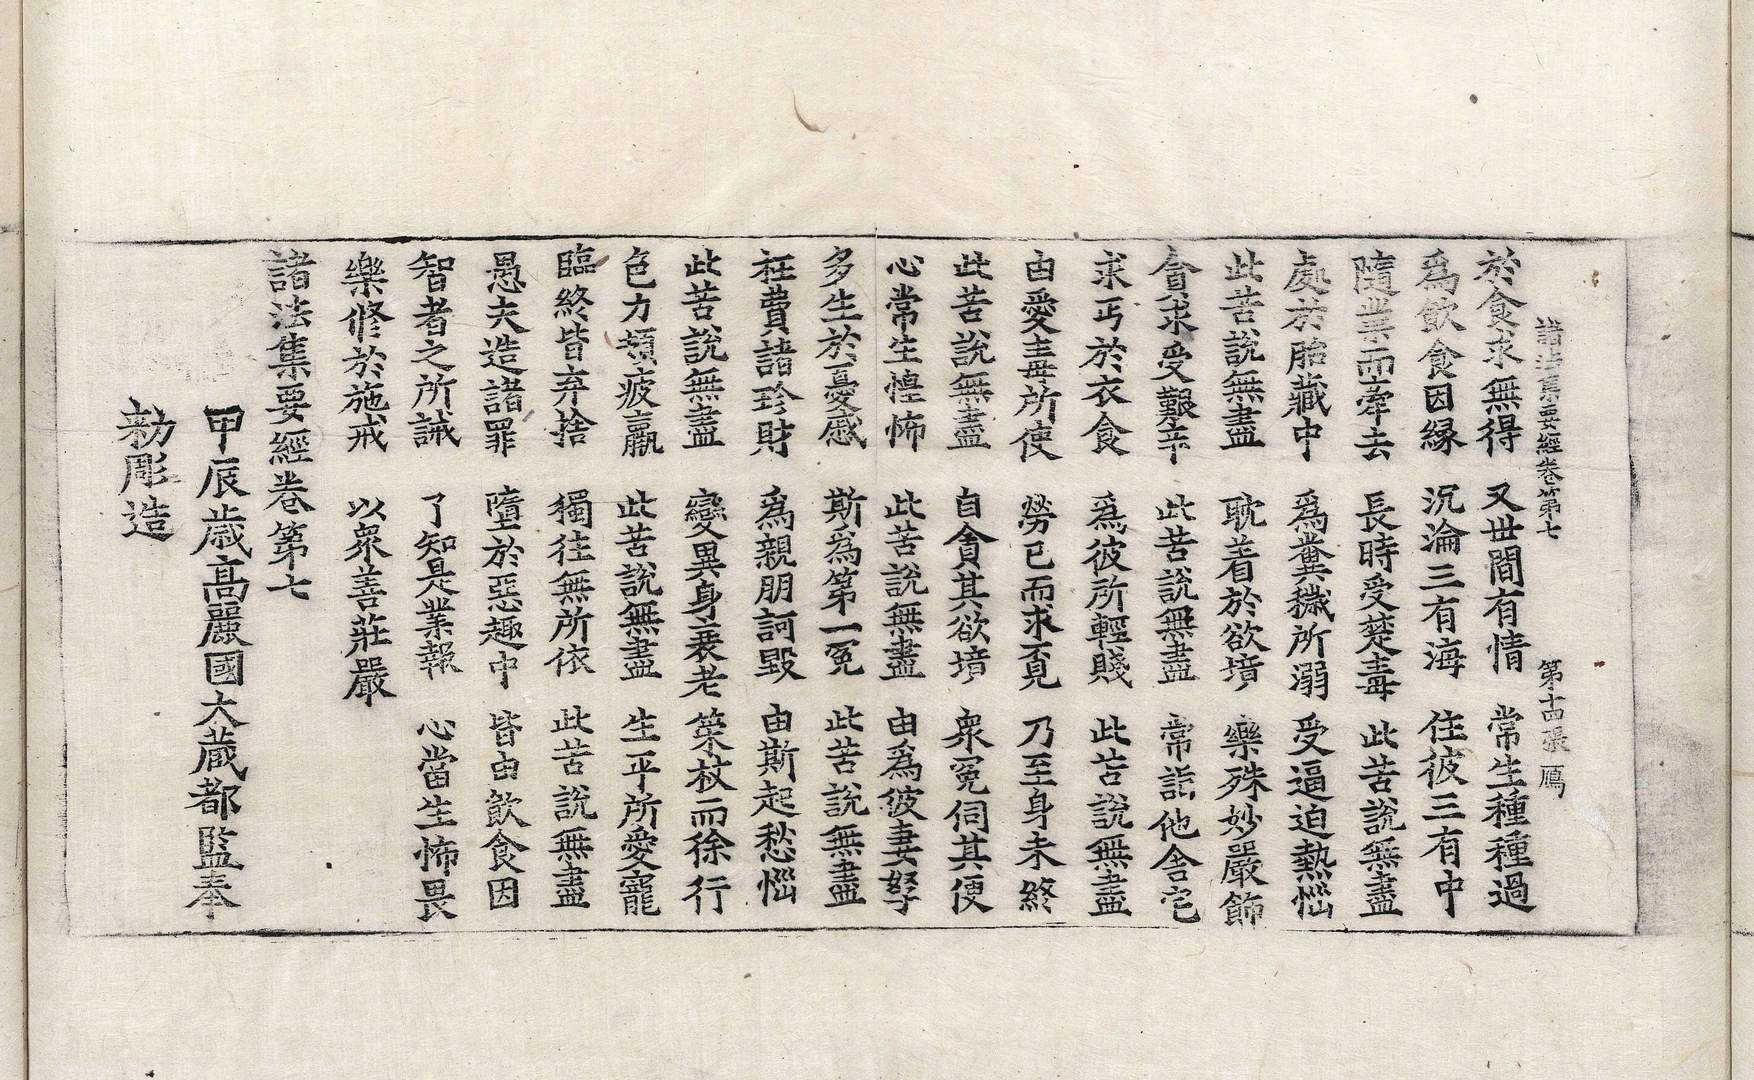 諸法集要經卷第七 第十四張 鴈
於食求無得 又世間有情 常生種種過
爲飲食因縁 沉淪三有海 住彼三有中
隨業而牽去 長時受楚毒 此苦說無盡
處於胎藏中 爲糞穢所溺 受逼迫熱惱
此苦說無盡 耽着於欲境 樂殊妙嚴飾
貪求受艱辛 此苦說無盡 常詣他舍宅
求丐於衣食 爲彼所輕賤 此苦說無盡
由愛毒所使 勞己而求覓 乃至身未終
此苦說無盡 自貪其欲境 衆冤伺其便
心常生惶怖 此苦說無盡 由爲彼妻孥
多生於憂慼 斯爲第一冤 此苦說無盡
枉費諸珍財 爲親朋訶毀 由斯起愁惱
此苦說無盡 變異身衰老 策杖而徐行
色力頓疲羸 此苦說無盡 生平所愛寵
臨終皆弃捨 獨往無所依 此苦說無盡
愚夫造諸罪 墮於惡趣中 皆由飲食因
智者之所誡 了知是業報 心當生怖畏
樂修於施戒 以衆善莊嚴
諸法集要經卷第七
甲辰歲高麗國大藏都監奉
勅彫造